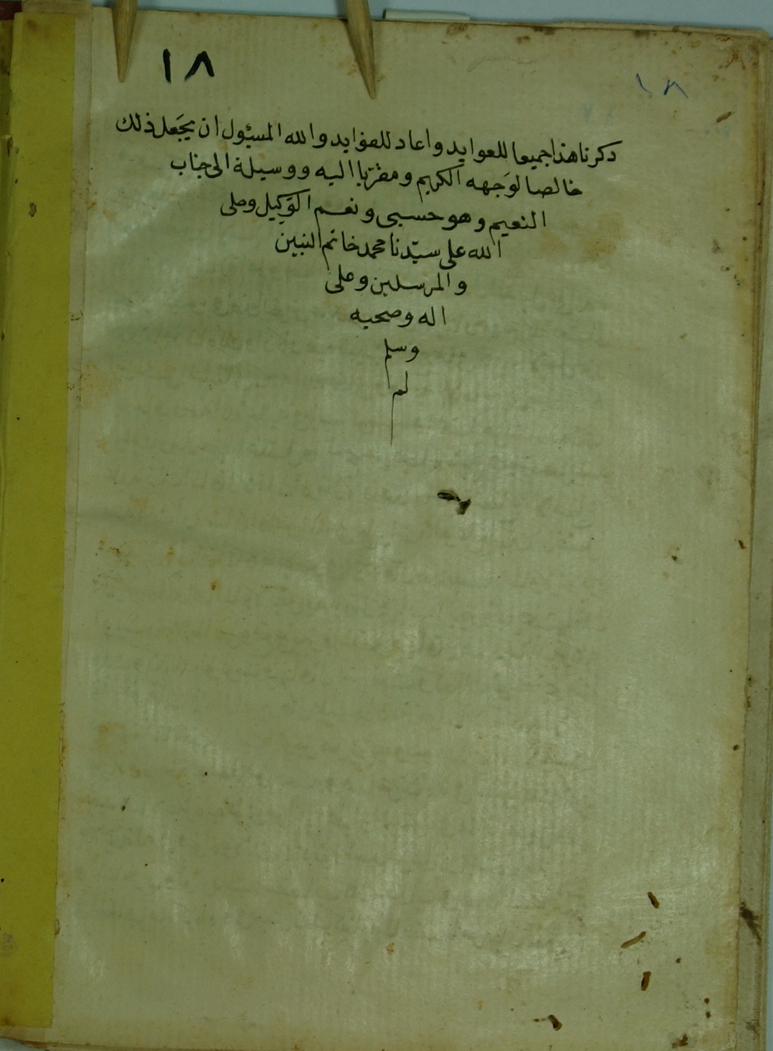 ١٨
١٨
ذكرنا هذا جميعا للعوايد واعاد للفوايد والله المسئول ان يجعل ذلك
خالصا لوجهه الكريم ومقربا اليه ووسيلة الى جناب
النعيم وهو حسبى ونعم الوكيل وصلى
الله على سيّدنا محمد خاتم النبين
والمرسلين وعلى
اله وصحبه
وسلم
لم